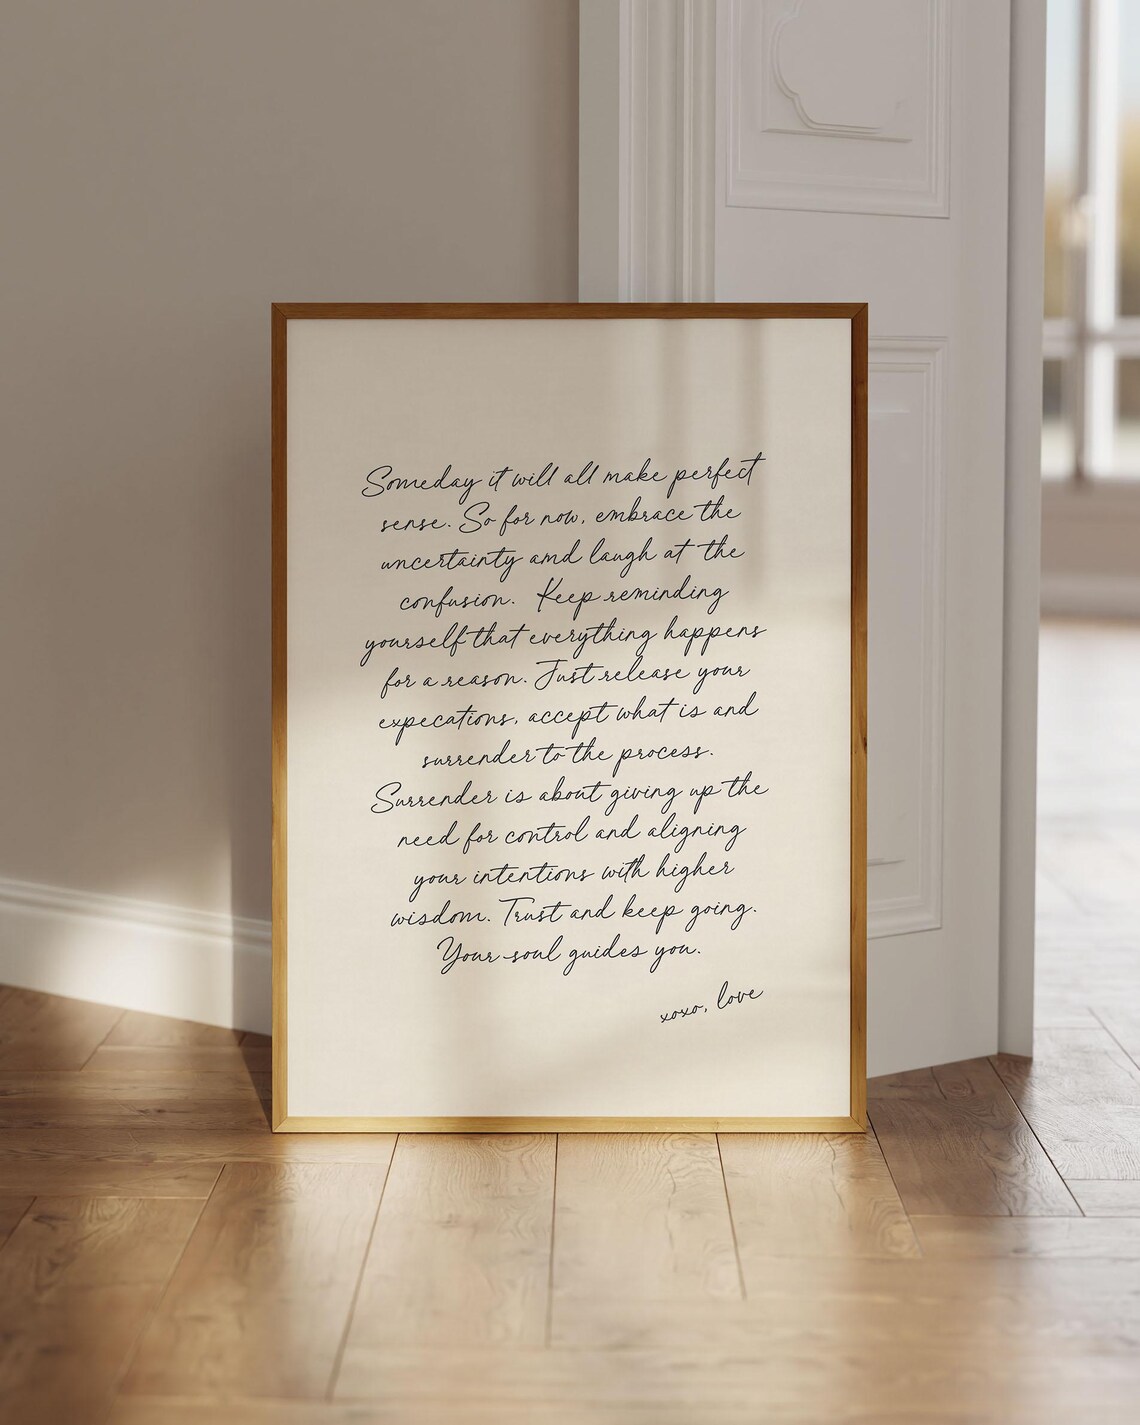 Someday it will all make perfect
sense. So for now, embrace the
uncertainty amd laugh at the
confusion. Keep reminding
yourself that everything happens
for a reason. Just release your
expecations, accept what is and
surrender to the process.
Surrender is about giving up the
need for control and aligning
your intentions with higher
wisdom. Trust and keep going.
Your soul guides you.
xoxo, love